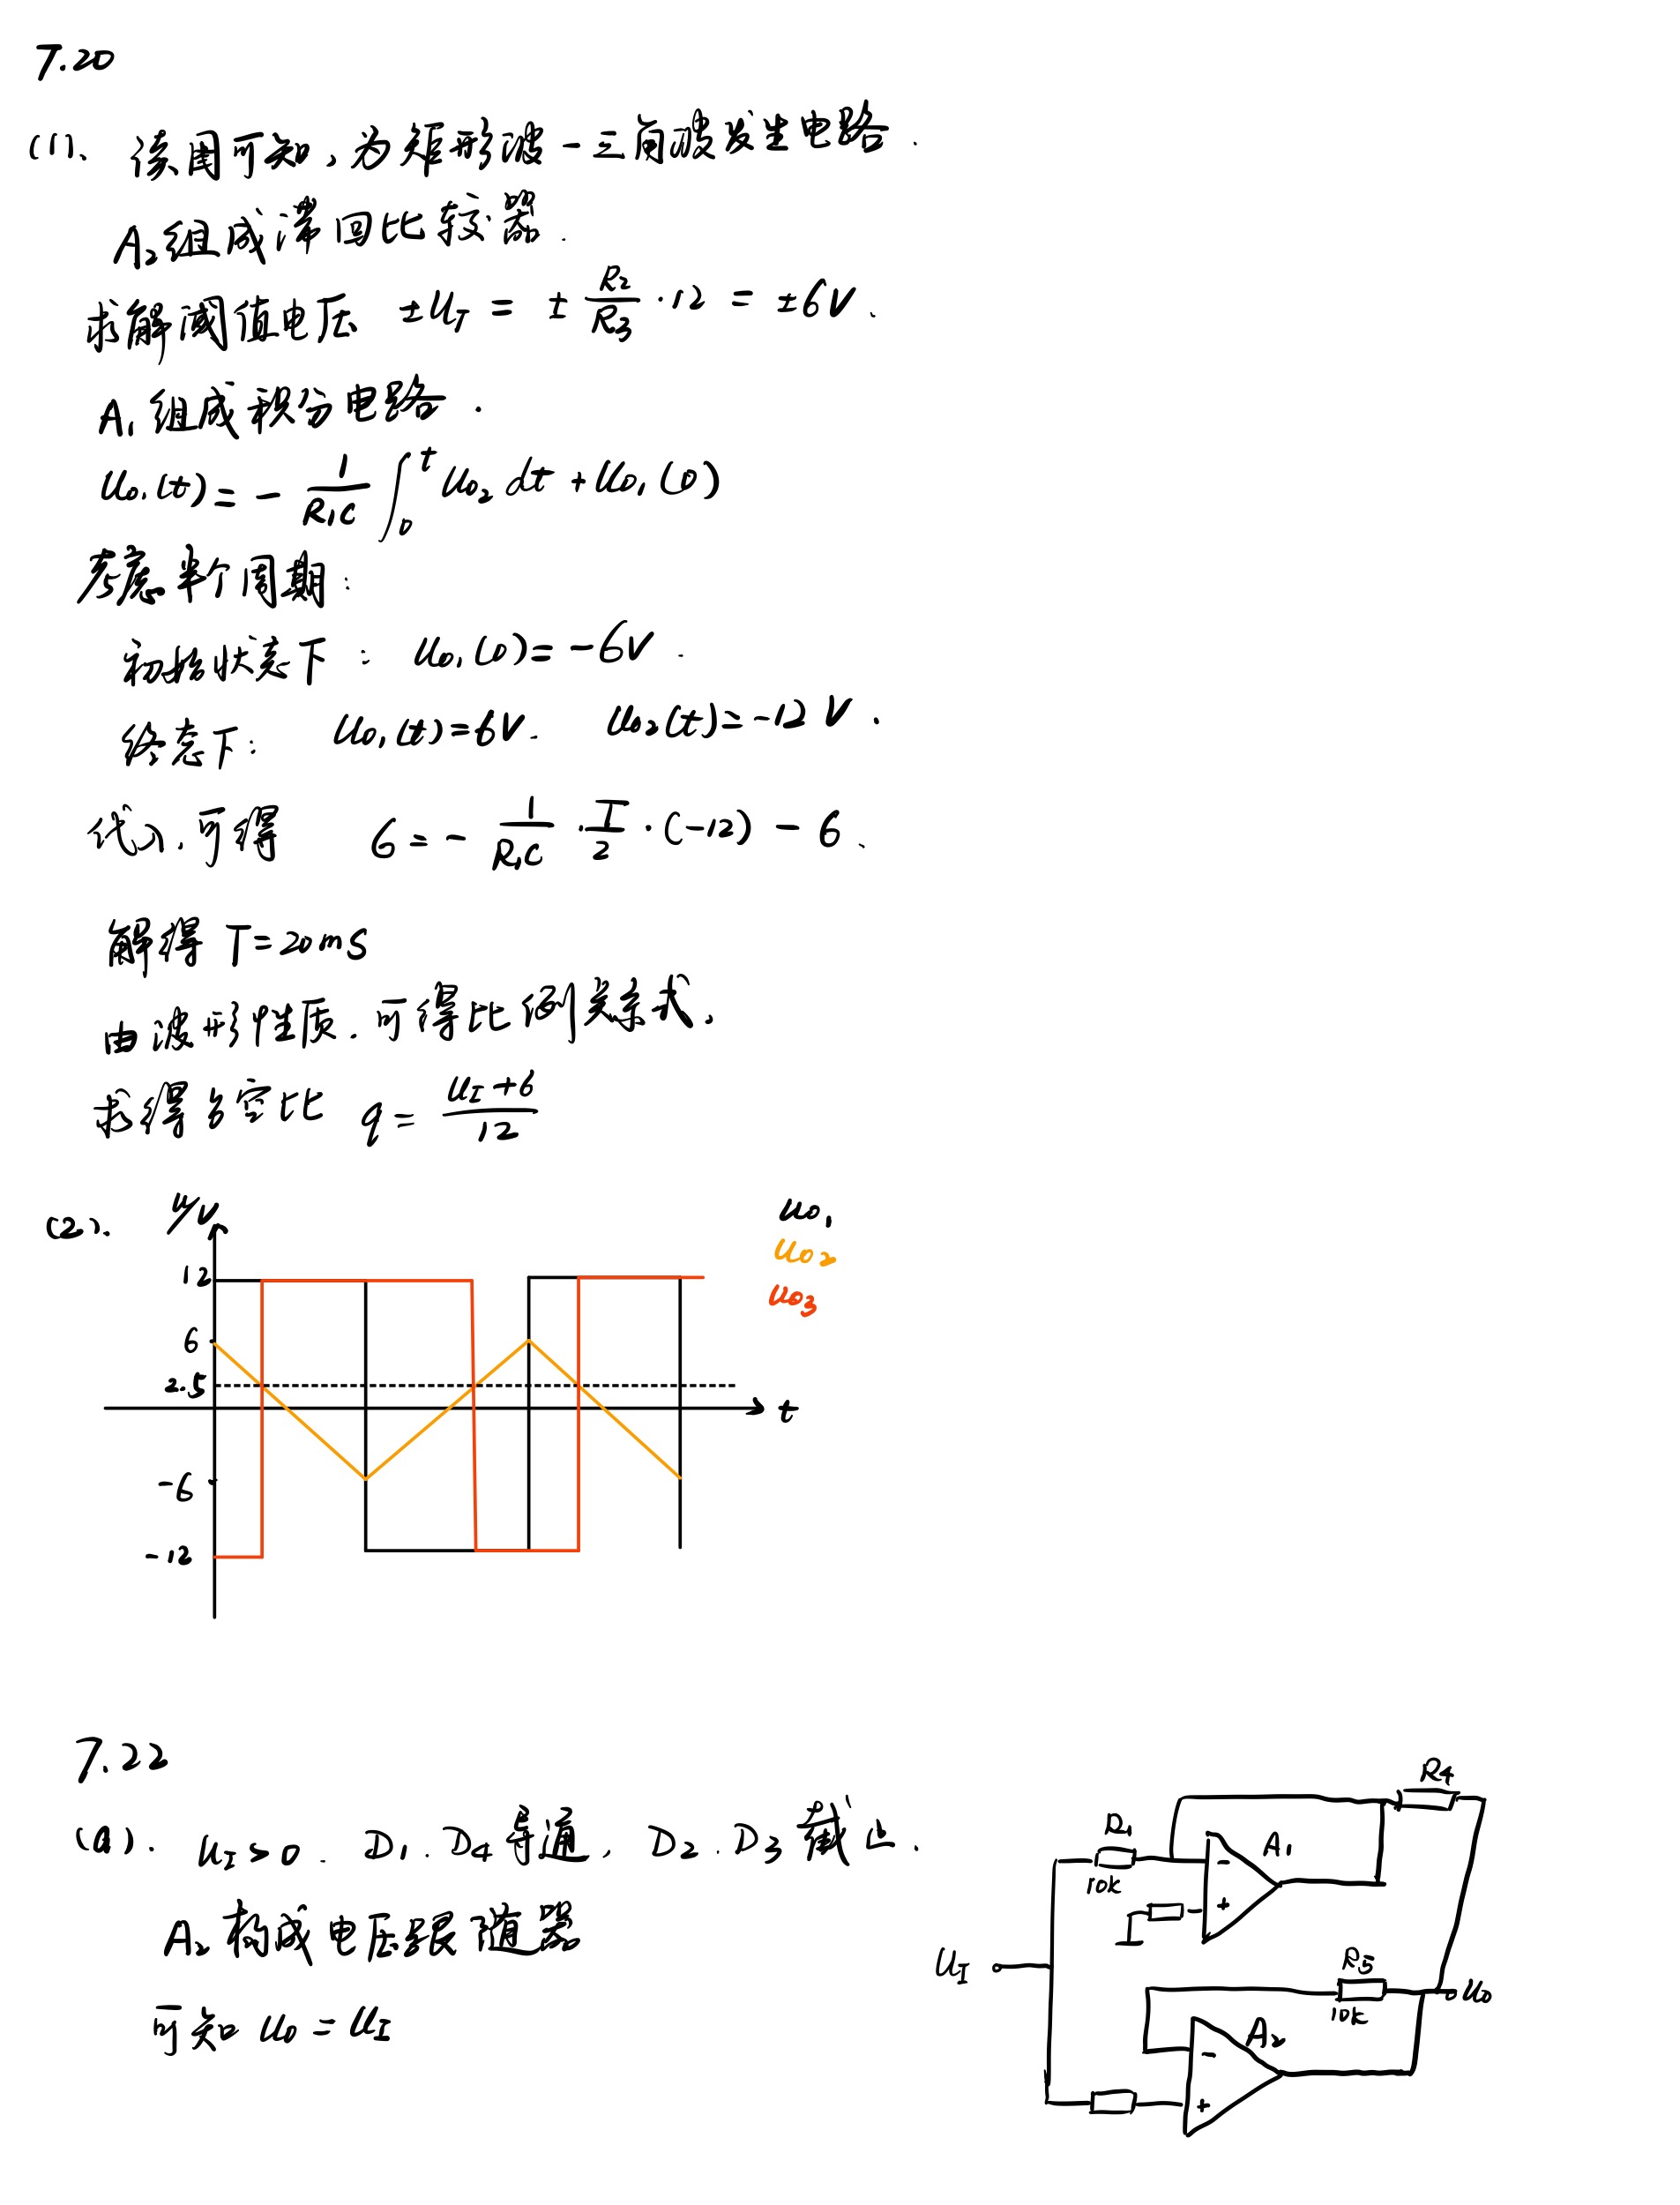 7.20
(1). 该图可知,为矩形波-三角波发生电路.
A₂组成滞回比较器.
求解阈值电压 ±U_T = ± R₂/R₃ · 12 = ±6V.
A₁组成积分电路.
u₀₁(t) = - 1/R₁C ∫₀ᵗ u₀₂ dt + u₀₁(0)
考虑半个周期:
初始状态下: u₀₁(0) = -6V.
终态下: u₀₁(t) = 6V. u₀₂(t) = -12V.
代入,可得 6 = - 1/R₁C · T/2 · (-12) - 6.
解得 T = 20ms
由波形性质.可得比例关系式,
求得占空比 q = u_I+6/12
(2). u/V u₀₁
u₀₂
12 u₀₃
6
2.5
t
-6
-12
7.22
(a). u_I > 0. D₁. D₄导通, D₂. D₃截止.
A₂构成电压跟随器
可知 u₀ = u_I
R₄
R₁ A₁
10k - +
u_I R₅ u₀
10k
A₂
- +